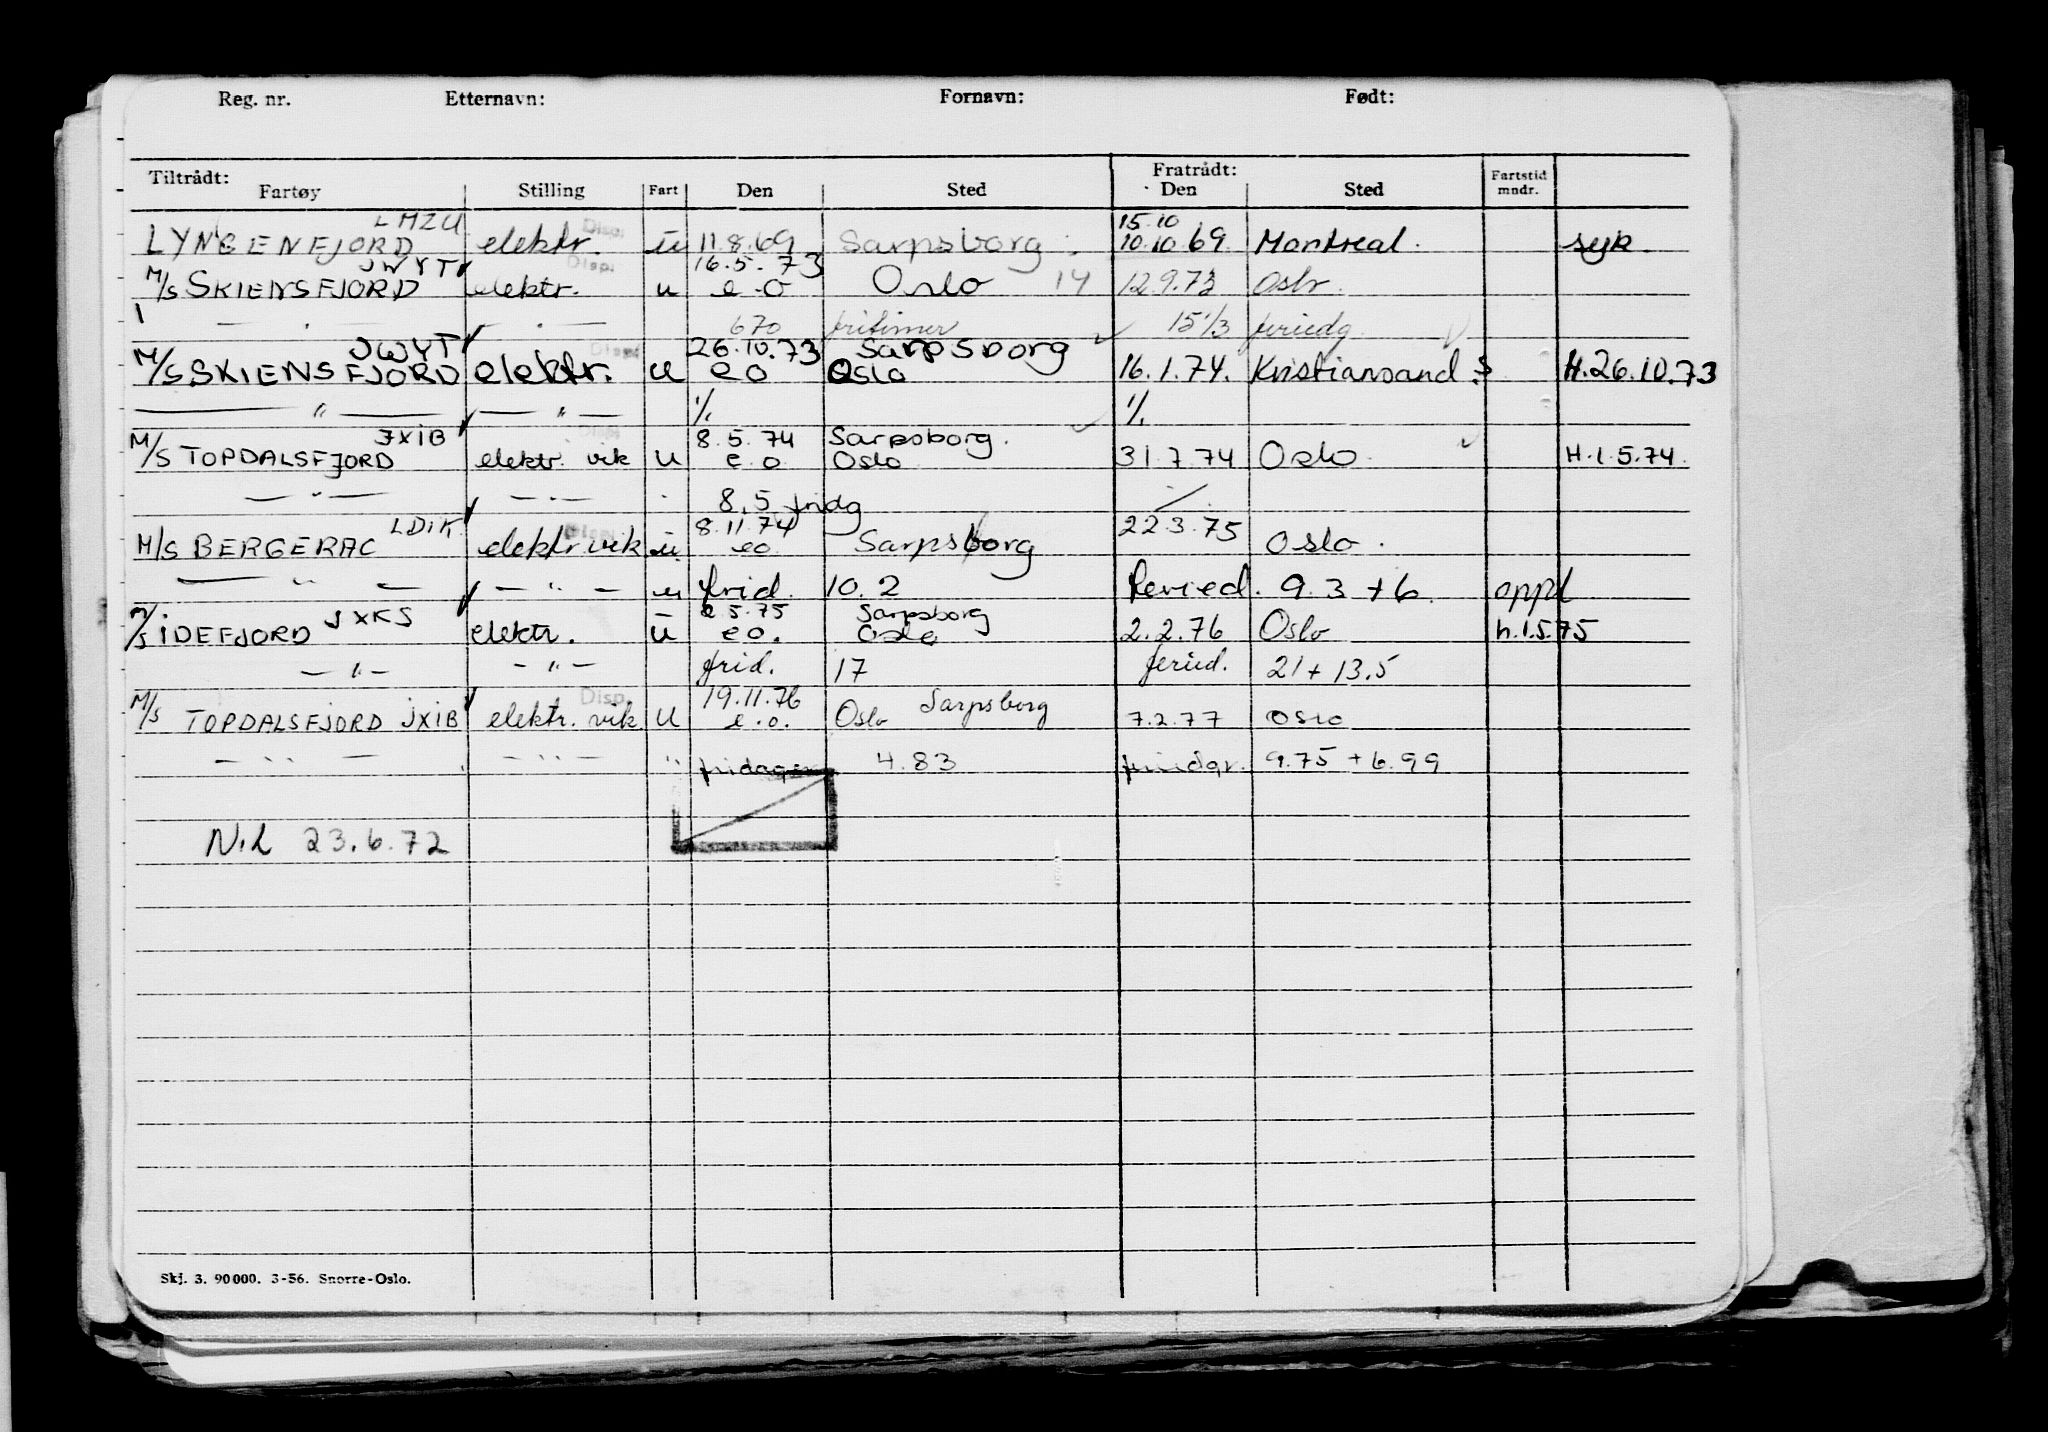 Reg. nr. Etternavn: Fornavn: Født:
Tiltrådt: Fratrådt:
Fartøy Stilling Fart Den Sted Den Sted Fartstid mndr.
LMZU Disp. 15.10
LYNGENFJORD elektr. u 11.8.69 Sarpsborg. 10.10.69 Montreal. syk.
JWYT Disp. 16.5.73
M/S SKIENSFJORD elektr. u e.o Oslo 14 12.9.73 Oslo.
— " — — " — 670 fritimer 15 1/3 feriedg
JWYT Disp. 26.10.73 Sarpsborg
M/S SKIENSFJORD elektr. u e o Oslo 16.1.74. Kristiansand.S H.26.10.73
— " — — " — 1/. 1/.
JXIB Disp. 8.5.74 Sarpsborg.
M/S TOPDALSFJORD elektr. vik u e.o. Oslo 31.7.74 Oslo. H.1.5.74.
— " — — " — 8,5 fridg
LDIK Disp. 8.11.74 22.3.75
M/S BERGERAC elektr vik. u eo Sarpsborg Oslo.
— " — — " — u frid. 10.2 feried. 9.3 + 6 oppl
JXKS 2.5.75 Sarpsborg
M/S IDEFJORD elektr. u eo. Oslo 2.2.76 Oslo h.1.5.75
— " — — " — frid. 17 feried. 21 + 13.5
Disp. 19.11.76 Sarpsborg
M/S TOPDALSFJORD JXIB elektr. vik. u e.o. Oslo 7.2.77 OSLO
— " — — " — " fridager 4.83 feriedgr. 9.75 + 6.99
N.L 23.6.72
Skj. 3. 90000. 3-56. Snorre-Oslo.